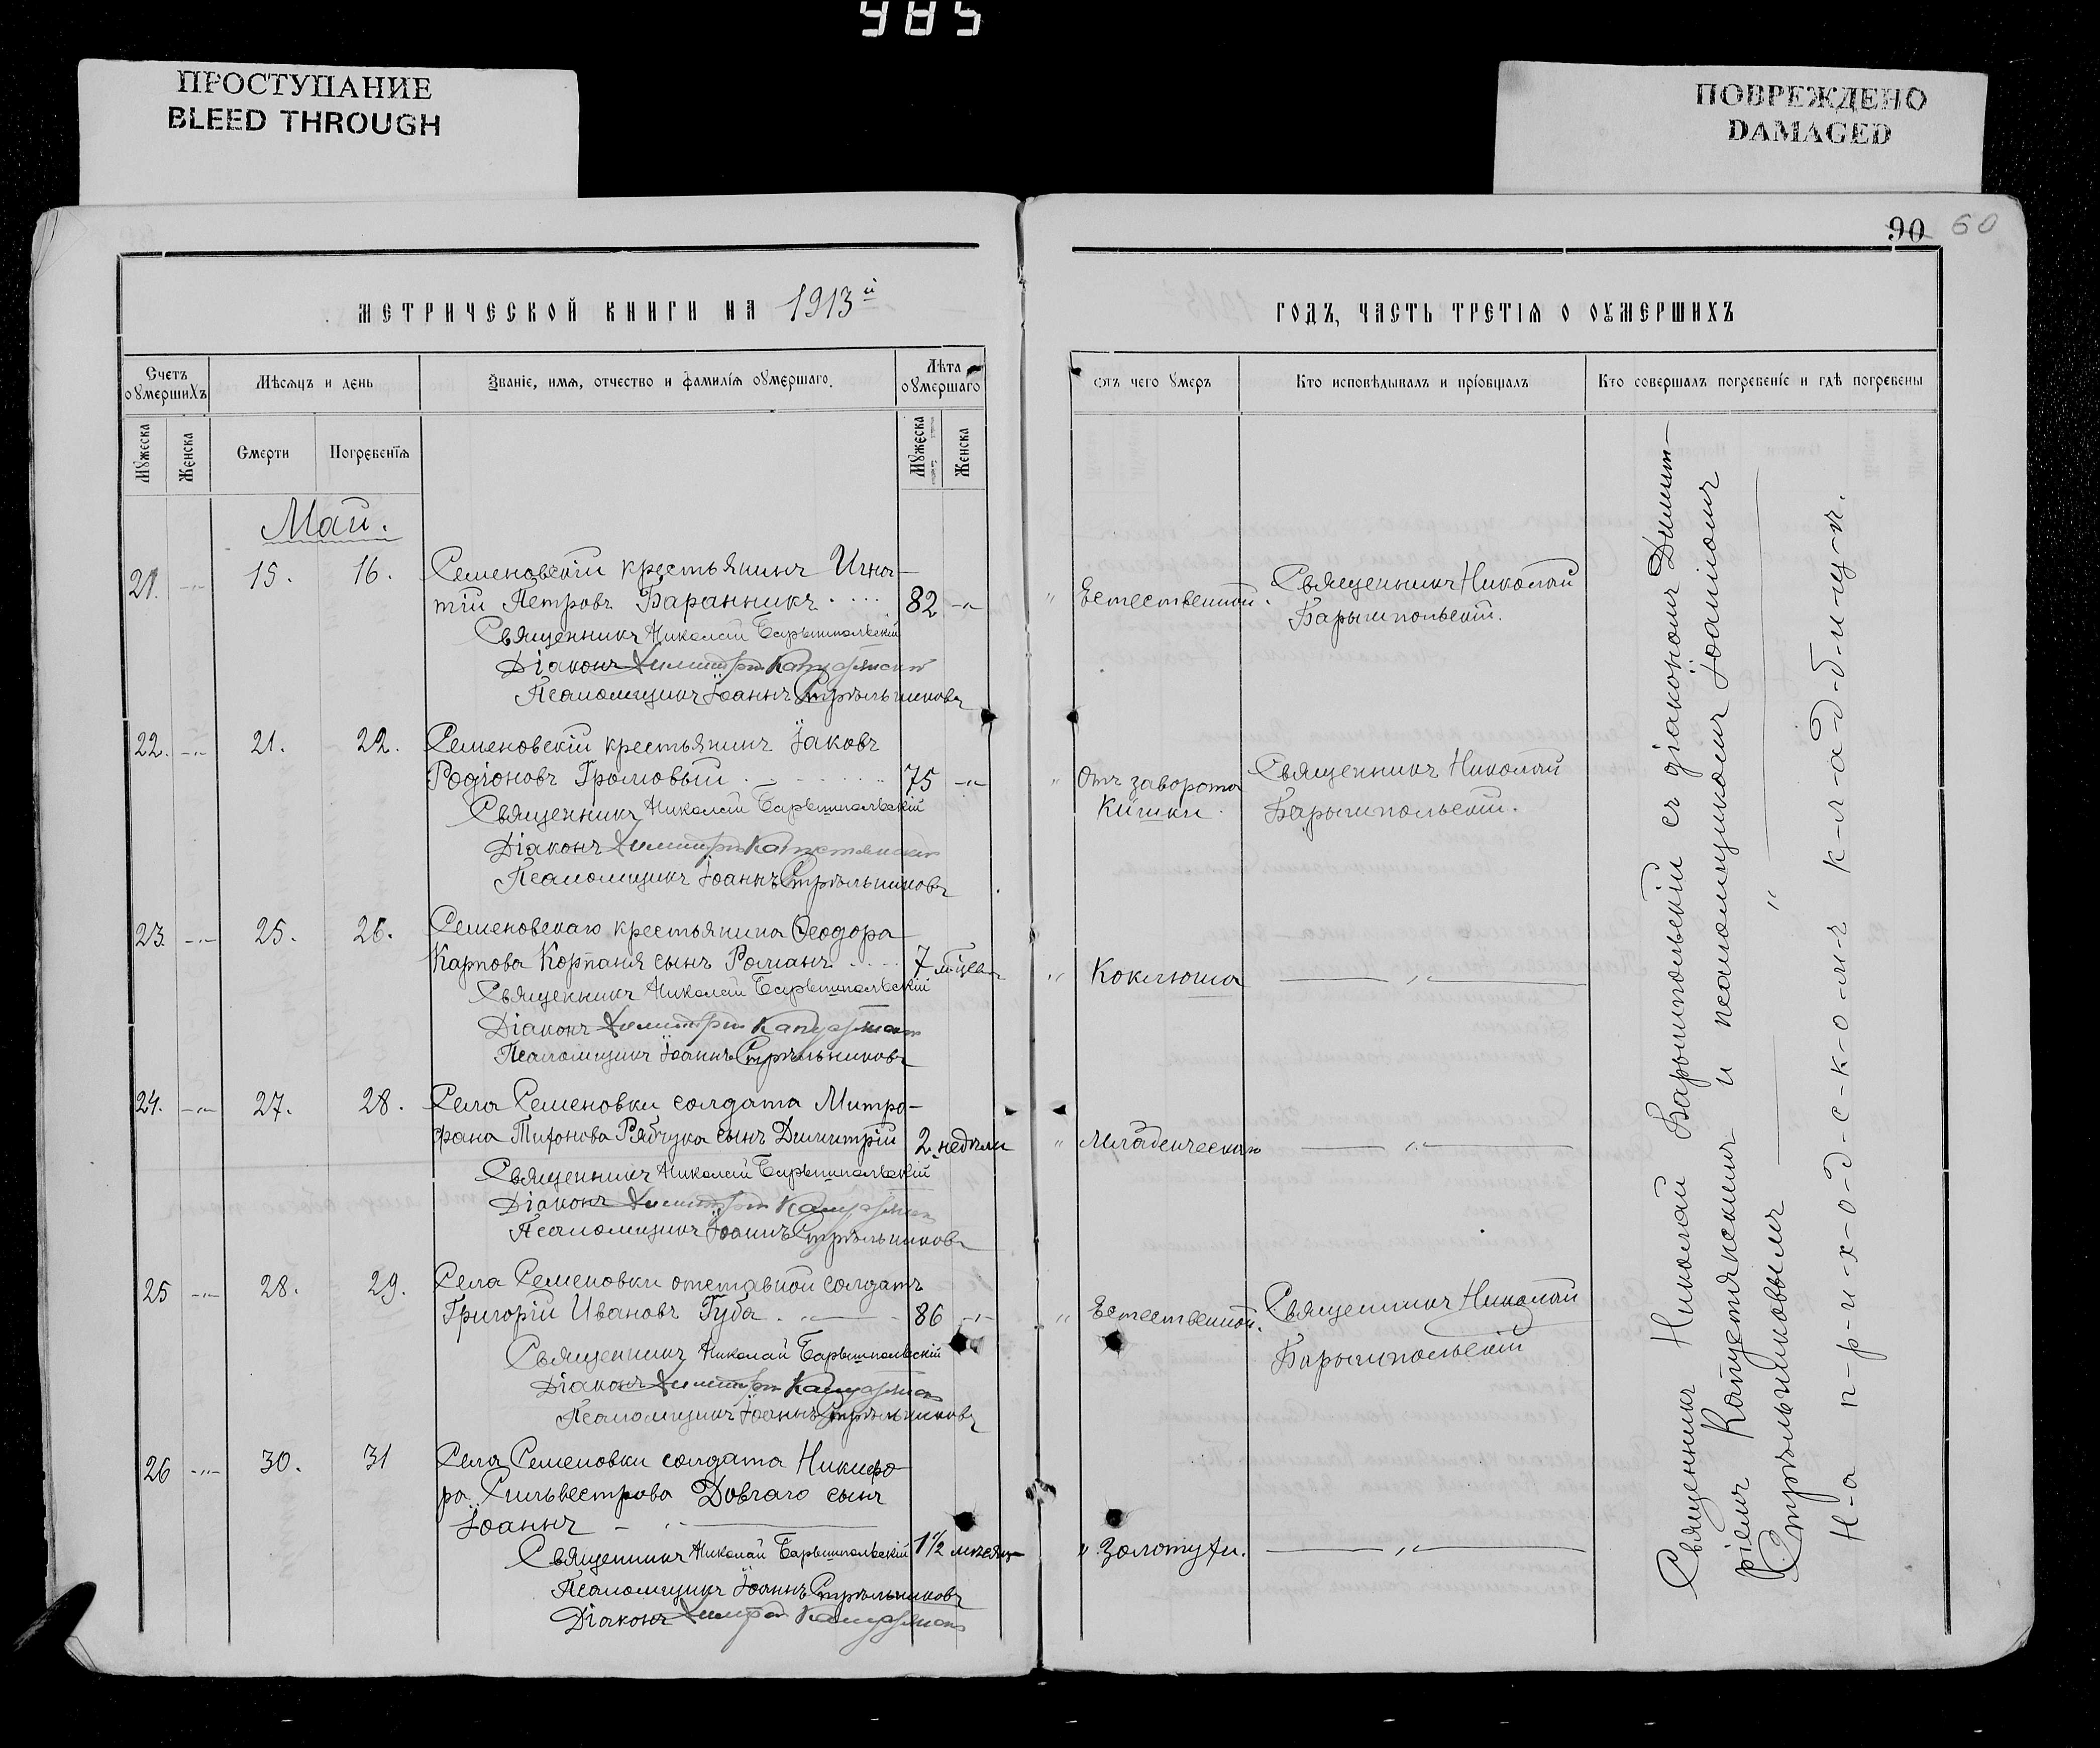 985
ПРОСТУПАНИЕ
BLEED THROUGH
ПОВРЕЖДЕНО
DAMAGED
90 60
МЕТРИЧЕСКОЙ КНИГИ НА 1913й
ГОДЪ, ЧАСТЬ ТРЕТІѦ О ОУМЕРШИХЪ
Счетъ оумершихъ
Мѣсѧцъ и день
Званіе, имѧ, отчество и фамиліѧ оумершаго.
Лѣта оумершаго
Ѿ чего умеръ
Кто исповѣдывалъ и пріобщалъ
Кто совершалъ погребеніе и гдѣ погребены
Мужеска
Женска
Смерти
Погребеніѧ
Мужеска
Женска
Май.
21. -"- 15. 16. Семеновскій крестьянинъ Игна-
тій Петровъ Баранникъ . . . . 82 -"-
Священникъ Николай Барышпольскій
Діаконъ Димитрій Капустянскій
Псаломщикъ Іоаннъ Стрѣльниковъ
" Естественной.
Священникъ Николай
Барышпольскій.
22. -"- 21. 22. Семеновскій крестьянинъ Іаковъ
Родіоновъ Громовый . . . . . 75 -"-
Священникъ Николай Барышпольскій
Діаконъ Димитрій Капустянскій
Псаломщикъ Іоаннъ Стрѣльниковъ
" Отъ заворота
Кишки.
Священникъ Николай
Барышпольскій.
23. -"- 25. 26. Семеновскаго крестьянина Ѳеодора
Карпова Корпаня сынъ Романъ . . . . 7 мѣсяцевъ
Священникъ Николай Барышпольскій
Діаконъ Димитрій Капустянскій
Псаломщикъ Іоаннъ Стрѣльниковъ
" Коклюша
— " —
24. -"- 27. 28. Села Семеновки солдата Митро-
фана Тифонова Рябчука сынъ Димитрій 2 недѣли
Священникъ Николай Барышпольскій
Діаконъ Димитрій Капустянскій
Псаломщикъ Іоаннъ Стрѣльниковъ
" Младенческою
— " —
25 -"- 28. 29. Села Семеновки отставной солдатъ
Григорій Ивановъ Губа . -"- 86 -"-
Священникъ Николай Барышпольскій
Діаконъ Димитрій Капустянскій
Псаломщикъ Іоаннъ Стрѣльниковъ
" Естественной.
Священникъ Николай
Барышпольскій
26 -"- 30. 31 Села Семеновки солдата Никифо-
ра Сильвестрова Довгаго сынъ
Іоаннъ - " —
1½ мѣсяца
Священникъ Николай Барышпольскій
Псаломщикъ Іоаннъ Стрѣльниковъ
Діаконъ Димитрій Капустянскій
" Золотухи.
— " —
Священникъ Николай Барышпольскій съ діакономъ Димит-
ріемъ Капустянскимъ и псаломщикомъ Іоанномъ
Стрѣльниковымъ — " —
Н-а п-р-и-х-о-д-с-к-о-м-ъ к-л-а-д-б-и-щ-ѣ.